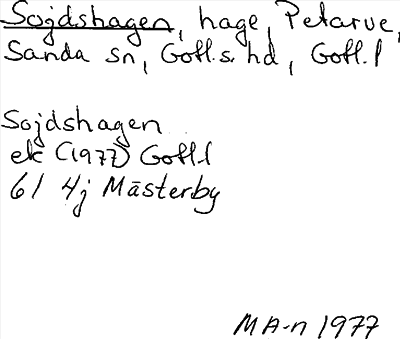 Sojdshagen, hage, Petarve,
Sanda sn, Gotl.s. hd, Gotl. l
Sojdshagen
ek (1977) Gotl.l
6I 4j Mästerby
MA-n 1977